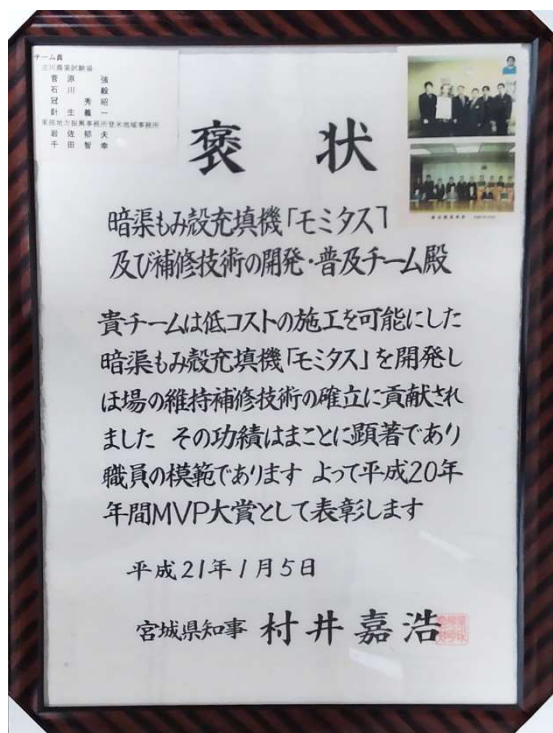 チーム員
古川農業試験場
菅原 強
石川 毅
冠 秀昭
針生義一
東部地方振興事務所登米地域事務所
岩佐郁夫
千田智幸
褒状
暗渠もみ殻充填機「モミタス」
及び補修技術の開発・普及チーム殿
貴チームは低コストの施工を可能にした
暗渠もみ殻充填機「モミタス」を開発し
ほ場の維持補修技術の確立に貢献され
ました その功績はまことに顕著であり
職員の模範であります よって平成20年
年間MVP大賞として表彰します
平成21年1月5日
宮城県知事 村井嘉浩